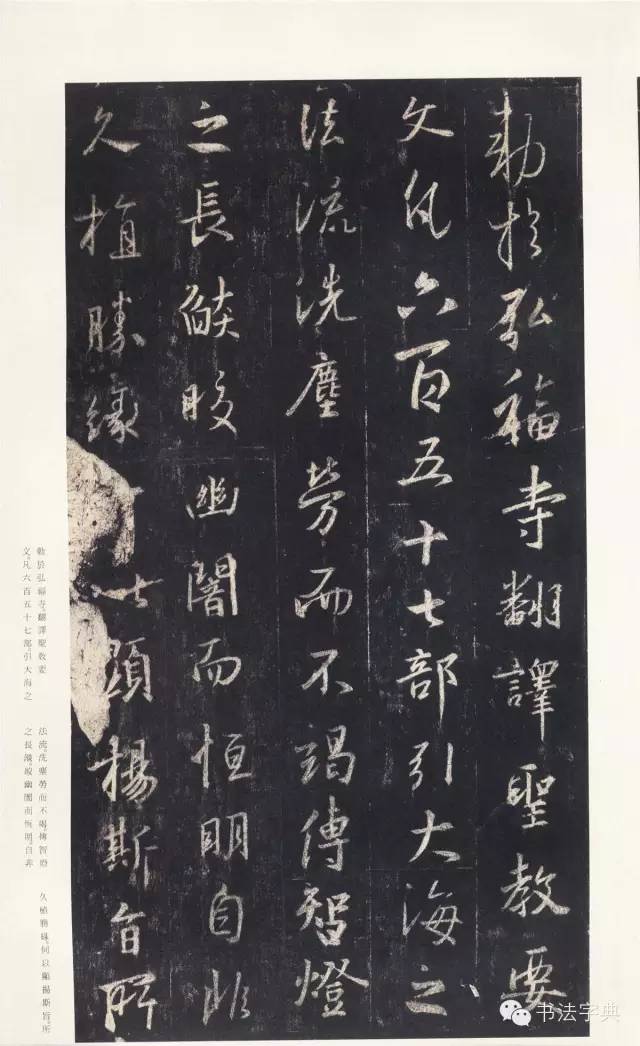 勅於弘福寺翻譯聖教要
文凡六百五十七部引大海之
法流洗塵勞而不竭傳智燈
之長燄皎幽闇而恒明自非
久植勝緣以顯揚斯旨所
勅於弘福寺。翻譯聖教要
文。凡六百五十七部。引大海之
法流。洗塵勞而不竭。傳智燈
之長燄。皎幽闇而恆明。自非
久植勝緣。何以顯揚斯旨。所
书法字典